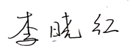 李晓红